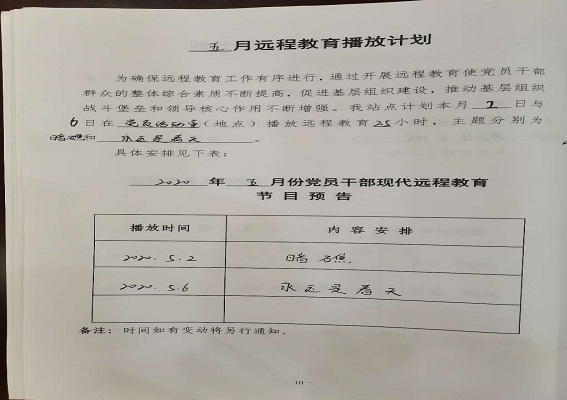 五月远程教育播放计划
为确保远程教育工作有序进行，通过开展远程教育使党员干部
群众的整体综合素质不断提高，促进基层组织建设，推动基层组织
战斗堡垒和领导核心作用不断增强。我站点计划本月2日与
6日在党员活动室（地点）播放远程教育2.5小时，主题分别为
暗礁和永远是春天。
具体安排见下表：
2020年五月份党员干部现代远程教育
节目预告
播放时间 内容安排
2020.5.2 暗礁
2020.5.6 永远是春天
备注：时间如有变动将另行通知。
- 10 -